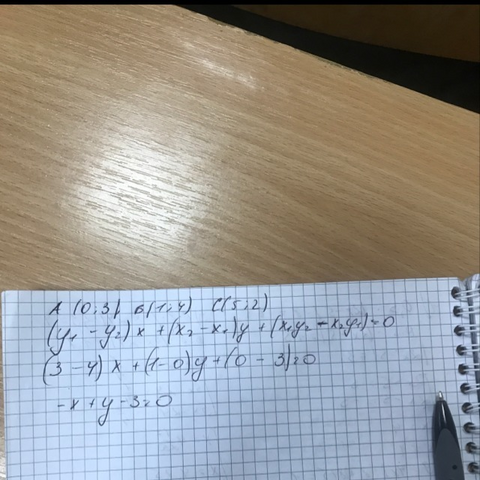 A (0;3) B(1;4) C(5;2)
(y₁ - y₂)x + (x₂ - x₁)y + (x₁y₂ - x₂y₁) = 0
(3 - 4)x + (1-0)y + (0 - 3) = 0
-x + y - 3 = 0